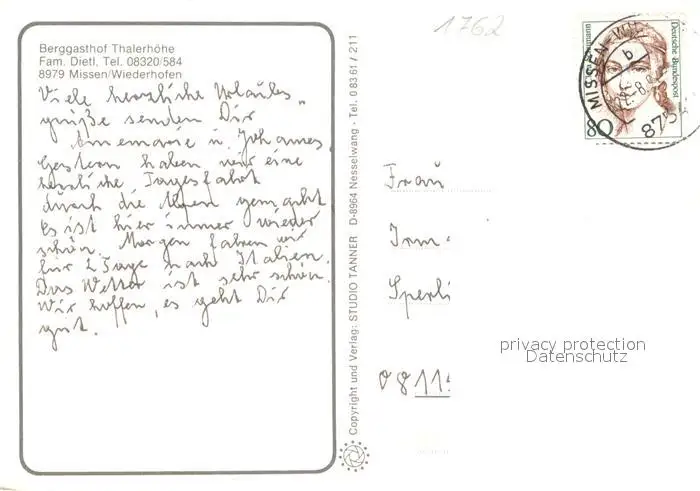 Berggasthof Thalerhöhe
Fam. Dietl, Tel. 08320/584
8979 Missen/Wiederhofen
Viele herzliche Urlaubs
grüße senden Dir
Annemarie u. Johannes
Gestern haben wir eine
herzliche Tagesfahrt
durch die Alpen gemacht
Es ist hier immer wieder
schön. Morgen fahren wir
für 2 Tage nach Italien.
Das Wetter ist sehr schön.
Wir hoffen, es geht Dir
gut.
Copyright und Verlag: STUDIO TANNER D-8964 Nesselwang - Tel. 0 83 61 / 211
1762
Deutsche Bundespost
80
MISSEN-
b
875
Frau
Irm
Sperli
0811
privacy protection
Datenschutz